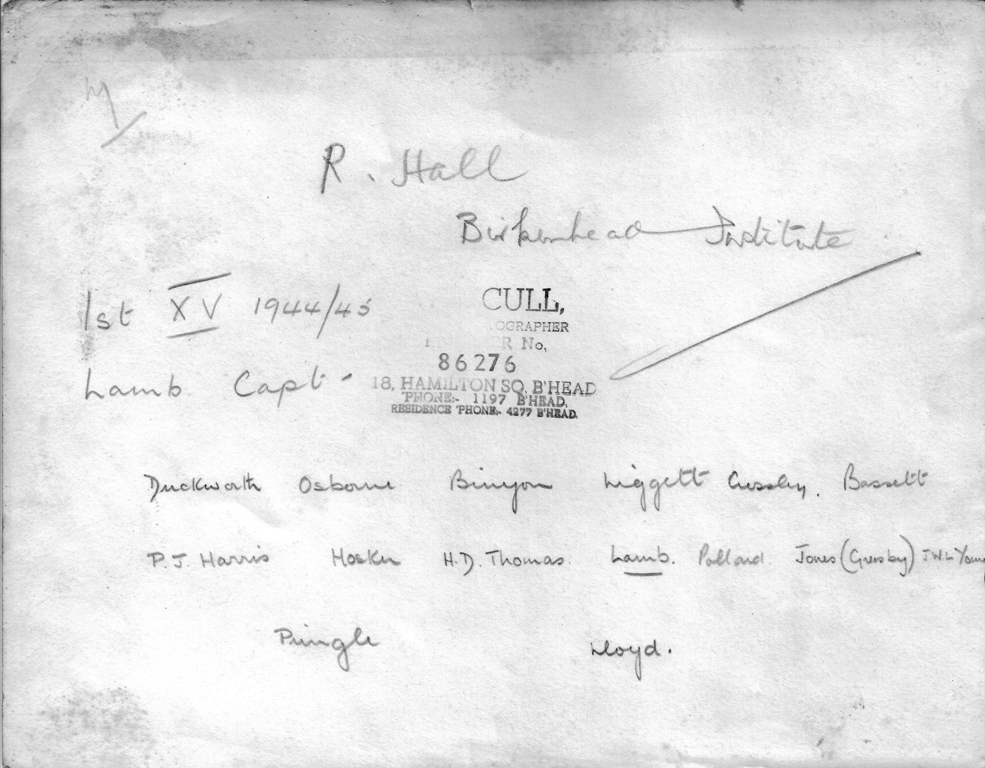 R. Hall
Birkenhead Institute
1st XV 1944/45
CULL,
OGRAPHER
R No.
86276
Lamb Capt -
18, HAMILTON SQ, B'HEAD
'PHONE:- 1197 B'HEAD,
RESIDENCE 'PHONE:- 4277 B'HEAD.
Duckworth Osborne Binyon Liggett Bassett
P.J. Harris Hosker H.D. Thomas. Lamb. Pollard. Jones (Gresby) J.W.L Young
Pringle Lloyd.